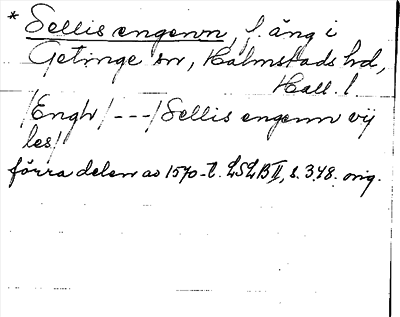 * Sellis engenn, f. äng i
Getinge sn, Halmstads hd,
Hall. l.
/Engh/ - - - /Sellis engenn vij
les/
förra delen av 1570-t. LSLB II, s. 348. orig.